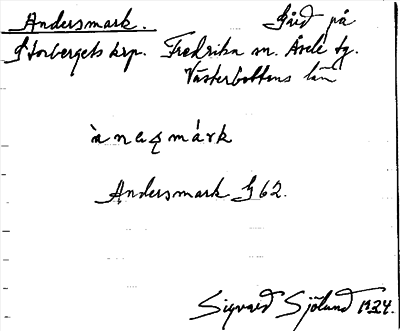 Andersmark. Gård på
Storbergets krp. Fredrika sn. Åsele tg.
Västerbottens län
ànaşmárk
Andersmark G 62.
Sigvard Sjölund 1924.